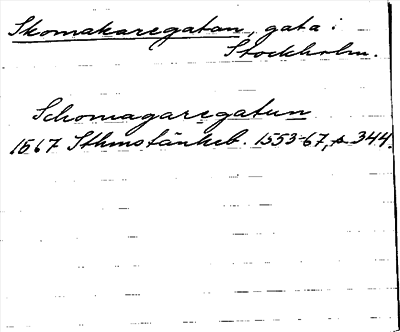 Skomakaregatan, gata i
Stockholm.
Schomagaregatun
1567 Sthmstänkeb. 1553-67, s 344.